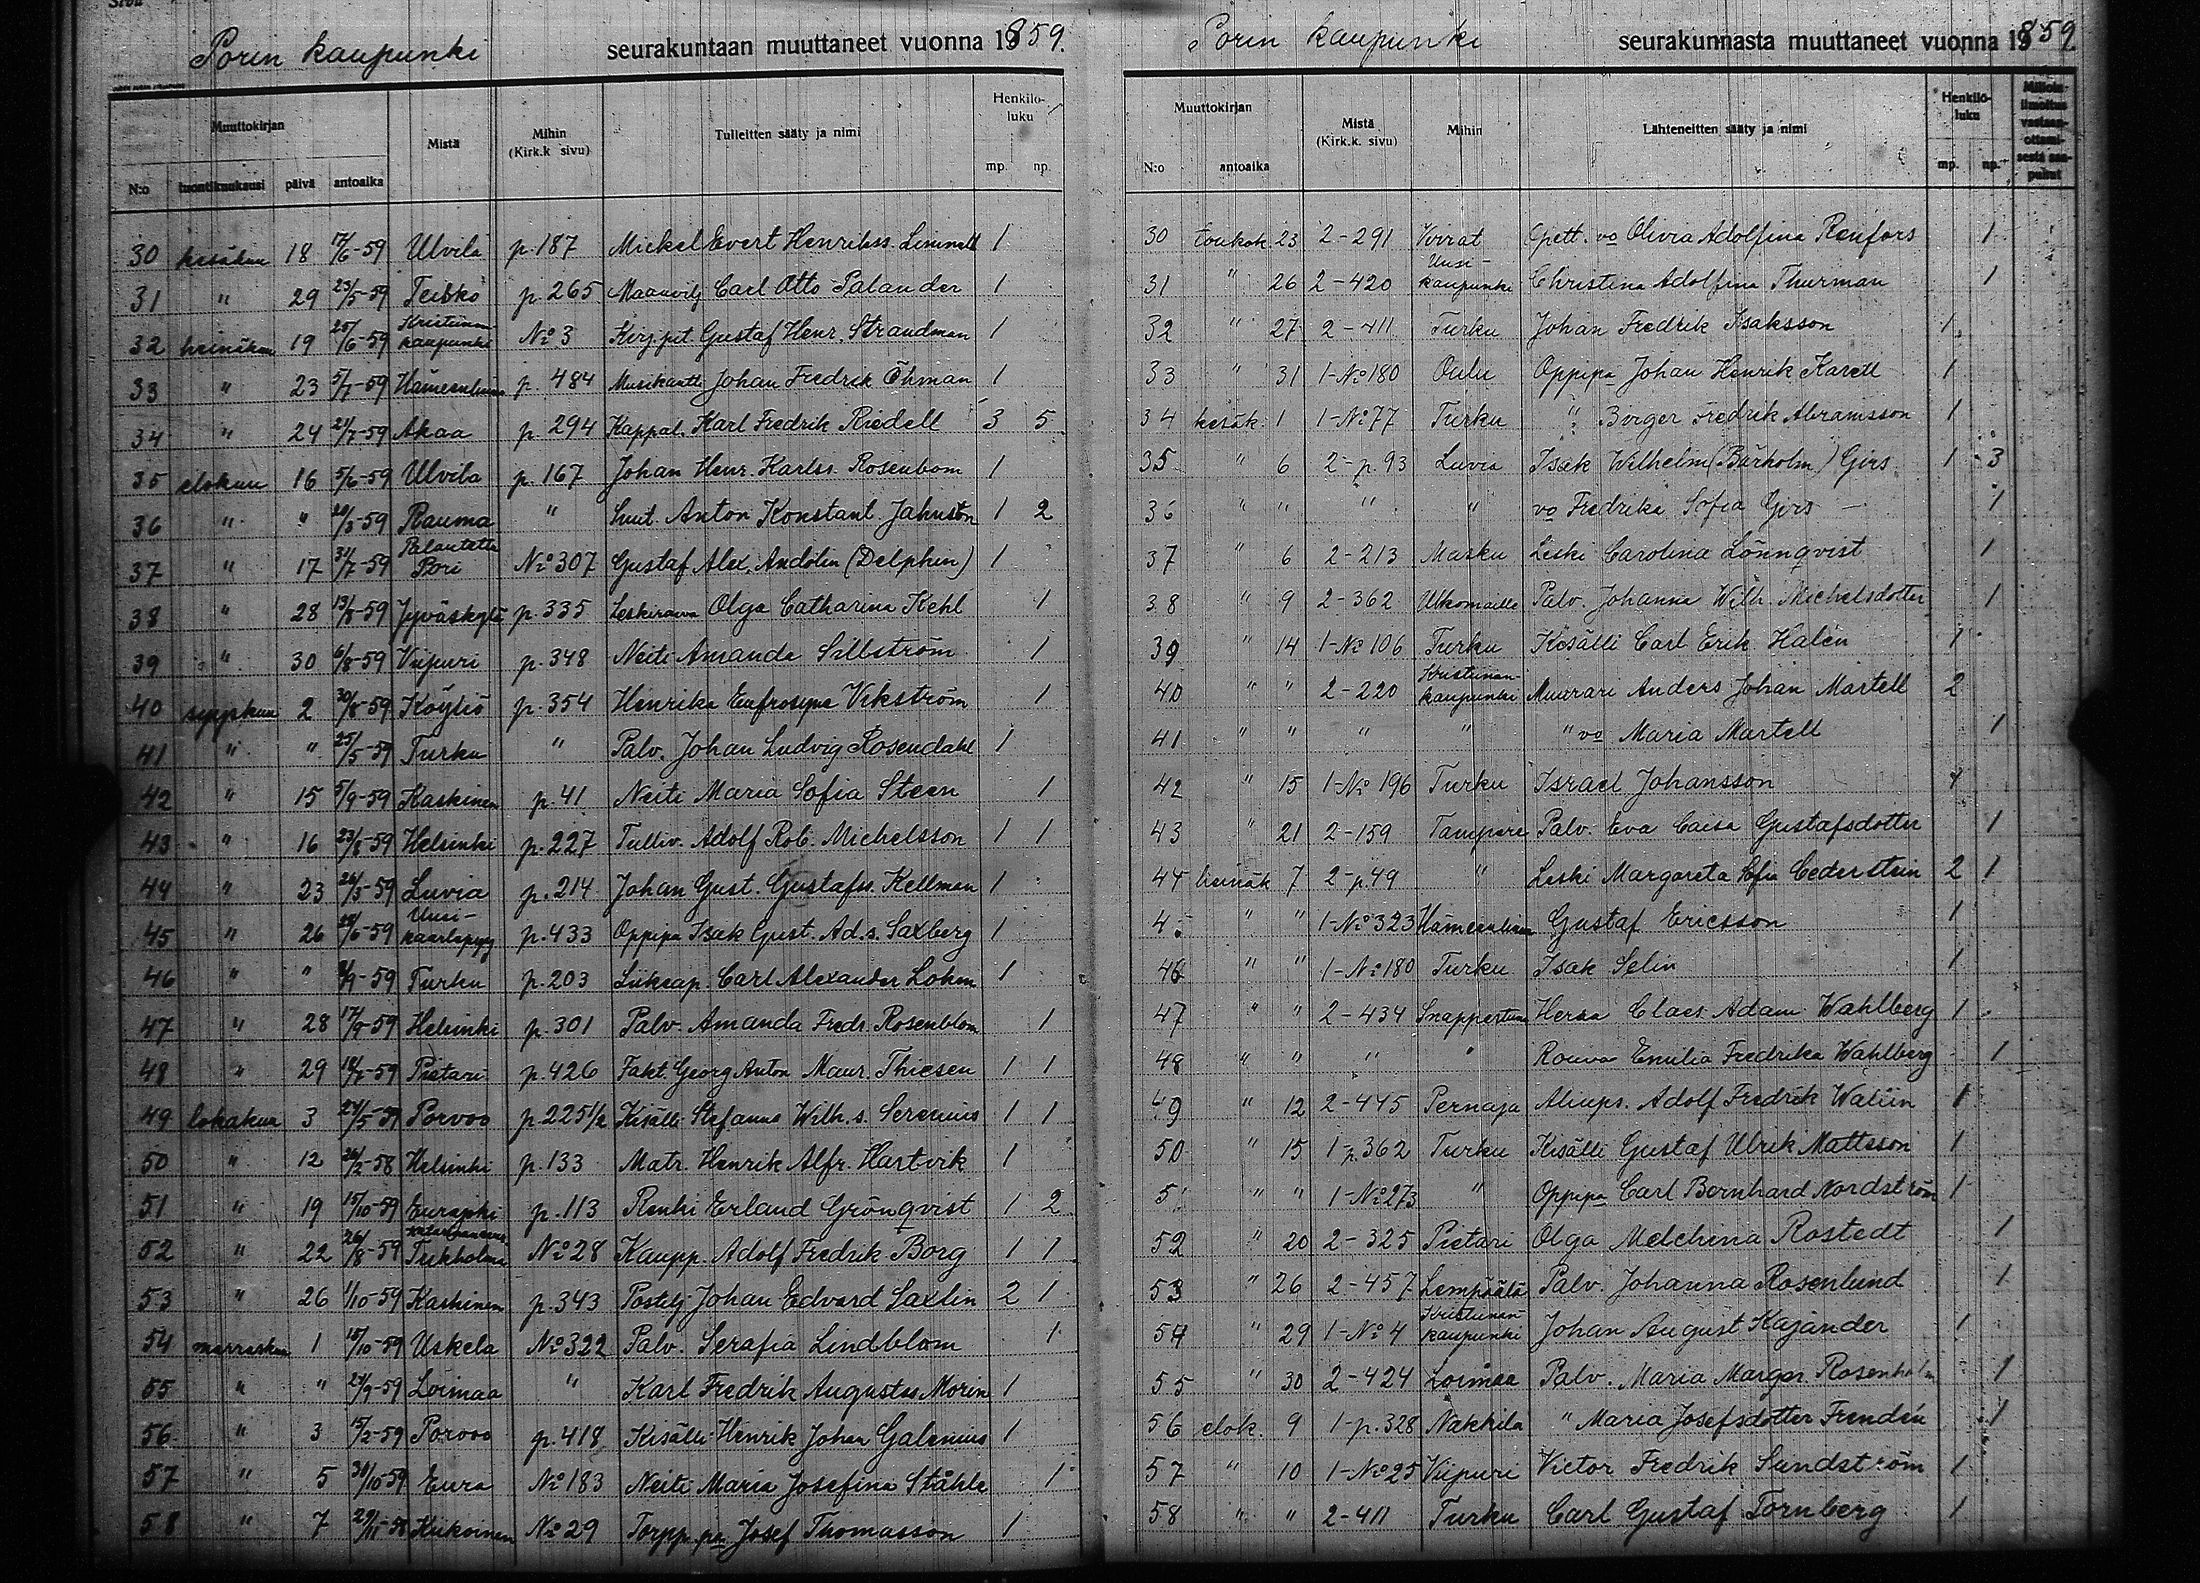 Porin kaupunki seurakuntaan muuttaneet vuonna 1859.
Muuttokirjan Mistä Mihin (Kirk.k sivu) Tulleitten sääty ja nimi Henkilöluku
N:o tuontikuukausi päivä antoaika mp. np.
30 kesäkuu 18 17/6-59 Ulvila p.187 Mickel Evert Henrikss. Liminell 1
31 " 29 23/5-59 Teisko p.265 Maanvilj Carl Otto Palander 1
32 heinäkuu 19 25/6-59 Kristiinankaupunki No 3 Kirj.pit. Gustaf Henr. Strandman 1
33 " 23 5/7-59 Hämeenlinna p.484 Musikantti Johan Fredrik Öhman 1
34 " 24 21/7-59 Akaa p.294 Kappal. Karl Fredrik Riedell 3 5
35 elokuu 16 5/6-59 Ulvila p.167 Johan Henr. Karlss. Rosenbom 1
36 " " 20/3-59 Rauma " Anton Konstant Jahnston 1 2
37 " 17 31/7-59 Palautettu Pori No 307 Gustaf Alex. Andolin (Delphin) 1
38 " 28 13/8-59 Jyväskylä p.335 Leskirouva Olga Catharina Kehl 1
39 " 30 6/8-59 Viipuri p.348 Neiti Amanda Sillström 1
40 syyskuu 2 30/8-59 Köyliö p.354 Henrika Eufrosyna Vikström 1
41 " " 25/5-59 Turku " Palv. Johan Ludvig Rosendahl 1
42 " 15 5/9-59 Kaskinen p.41 Neiti Maria Sofia Steen 1
43 " 16 23/8-59 Helsinki p.227 Tulliv. Adolf Rob. Michelsson 1 1
44 " 23 26/3-59 Luvia p.214 Johan Gust. Gustafss. Kellman 1
45 " 26 28/6-59 Uusi-kaarlepyy p.433 Oppipa Isak Gust. Ad.s. Saxberg 1
46 " " 59 Turku p.203 Liikeap. Carl Alexander Lohm 1
47 " 28 17/9-59 Helsinki p.301 Palv. Amanda Fredr. Rosenblom 1
48 " 29 18/8-59 Pietari p.426 Fakt. Georg Anton Maur. Thiesen 1 1
49 lokakuu 3 24/5-59 Porvoo p.225 1/2 Kisälli Stefanus Wilh.s. Serenius 1 1
50 " 12 26/2-58 Helsinki p.133 Matr. Henrik Alfr. Hartvik 1
51 " 19 15/10-59 Eurajoki p.113 Renki Erland Grönqvist 1 2
52 " 22 26/8-59 Tukholma No 28 Kaupp. Adolf Fredrik Borg 1 1
53 " 26 1/10-59 Kaskinen p.343 Postilj Johan Edvard Saxlin 2 1
54 marraskuu 1 15/10-59 Uskela No 322 Palv. Serafia Lindblom 1
55 " " 29/9-59 Loimaa " Karl Fredrik Augustss Morin 1
56 " 3 15/2-59 Porvoo p.418 Kisälli Henrik Johan Galenius 1
57 " 5 31/10-59 Eura No 183 Neiti Maria Josefina Ståhle 1
58 " 7 29/11-58 Kiikoinen No 29 Torpp. poi Josef Thomasson 1
Porin kaupunki seurakunnasta muuttaneet vuonna 1859.
Muuttokirjan Mistä (Kirk.k. sivu) Mihin Lähteneitten sääty ja nimi Henkilöluku
N:o antoaika mp. np.
30 toukok. 23 2-291 Virrat Opett. vo Olivia Adolfina Renfors 1
31 " 26 2-420 Uusi-kaupunki Christina Adolfina Thurman 1
32 " 27 2-411 Turku Johan Fredrik Isaksson 1
33 " 31 1-No 180 Oulu Oppipa Johan Henrik Karell 1
34 kesäk. 1 1-No 77 Turku " Birger Fredrik Abramsson 1
35 " 6 2-p.93 Luvia Isak Wilhelm (Bärholm) Girs 1 3
36 " " " " vo Fredrika Sofia Girs 1
37 " 6 2-213 Masku Leski Carolina Lönnqvist 1
38 " 9 2-362 Ulkomaille Palv. Johanna Wilh. Michelsdotter 1
39 " 14 1-No 106 Turku Kisälli Carl Erik Halén 1
40 " " 2-220 Kristiinankaupunki Muurari Anders Johan Martell 2
41 " " " " " vo Maria Martell 1
42 " 15 1-No 196 Turku Israel Johansson 1
43 " 21 2-159 Tampere Palv. Eva Caisa Gustafsdotter 1
44 heinäk 7 2-p.49 " Leski Margareta Sofia Cederstein 2 1
45 " " 1-No 323 Hämeenlinna Gustaf Ericsson 1
46 " " 1-No 180 Turku Isak Selin 1
47 " " 2-434 Snappertuna Herra Claes Adam Wahlberg 1
48 " " " " Rouva Emilia Fredrika Wahlberg 1
49 " 12 2-445 Pernaja Aliups. Adolf Fredrik Walün 1
50 " 15 1 p.362 Turku Kisälli Gustaf Ulrik Mattsson 1
51 " " 1-No 273 " Oppipa Carl Bernhard Nordström 1
52 " 20 2-325 Pietari Olga Melchina Rostedt 1
53 " 26 2-457 Lempäälä Palv. Johanna Rosenlund 1
54 " 29 1-No 4 Kristiinankaupunki Johan August Kajander 1
55 " 30 2-424 Loimaa Palv. Maria Margar. Rosenholm 1
56 elok. 9 1-p.328 Nakkila " Maria Josefsdotter Frendén 1
57 " 10 1-No 25 Viipuri Victor Fredrik Sundström 1
58 " " 2-411 Turku Carl Gustaf Tornberg 1